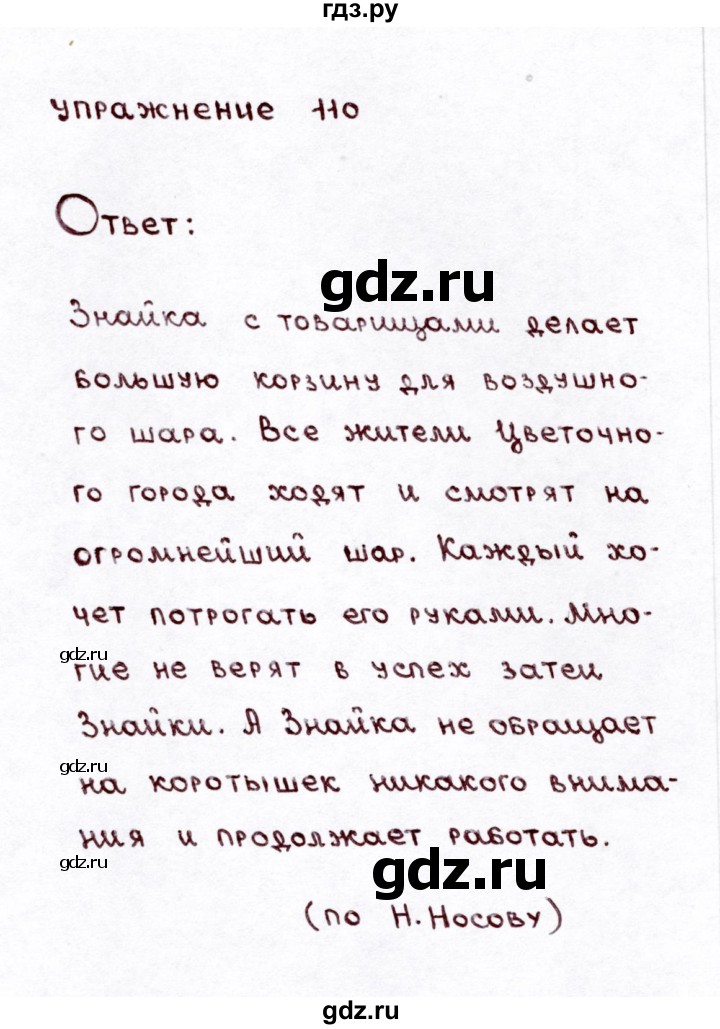 гдз.ру
упражнение 110
Ответ:
gdz.ru
Знайка с товарищами делает
большую корзину для воздушно-
го шара. Все жители Цветочно-
го города ходят и смотрят на
огромнейший шар. Каждый хо-
чет потрогать его руками. Мно-
gdz.ru
гие не верят в успех затеи
Знайки. А Знайка не обращает
gdz.ru
на коротышек никакого внима-
ния и продолжает работать.
gdz.ru
gdz.ru
(по Н. Носову)
gdz.ru